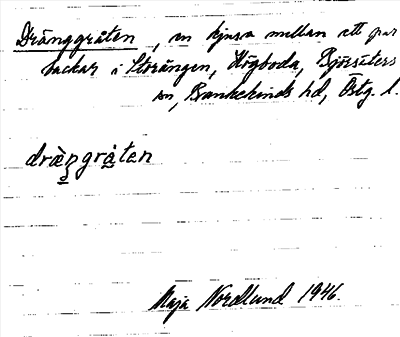 Dränggråten, en tjusa mellan ett par
backar i Storängen, Högboda, Björsäters
sn, Bankekinds hd, Östg. l.
dräŋgråten
Maja Nordlund 1946.